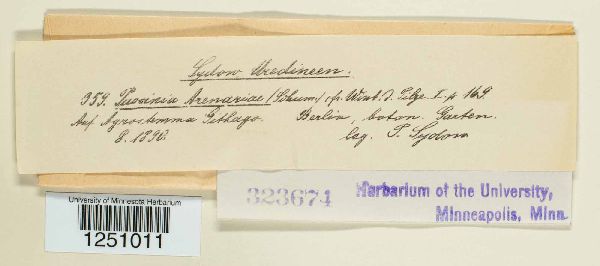 Sydow Uredineen.
359. Puccinia Arenariae (Schum.) cfr. Wint. D. Pilze I. p. 169.
Auf Agrostemma Githago. Berlin, boton. Garten.
8. 1890. leg. P. Sydow
323674 Herbarium of the University,
Minneapolis, Minn.
University of Minnesota Herbarium
1251011